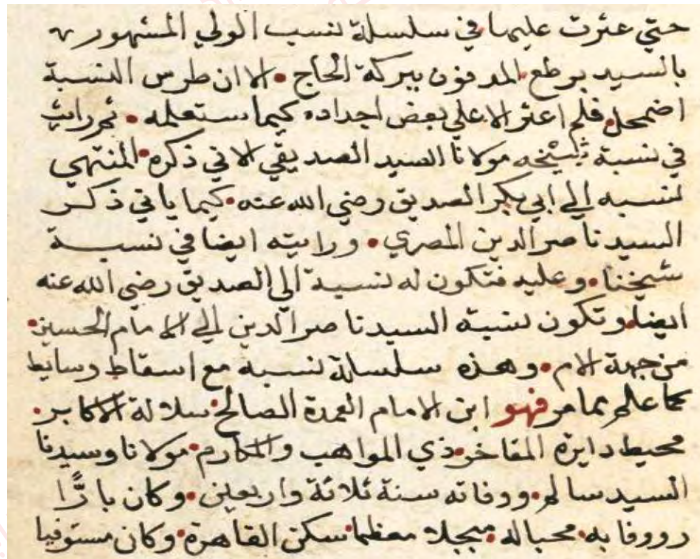 حتي عثرت عليها في سلسلة نسب الولي المشهور
بالسيد برطع المدفون ببركة الحاج • الا ان طرس النسبة
اضمحل فلم اعثر الا علي بعض اجداده كيما ستعلمه • ثم رايت
في نسبة شيخه مولانا السيد الصديقي الاتي ذكره المنتهي
نسبه الي ابي بكر الصديق رضي الله عنه • كيما ياتي ذكر
السيد ناصر الدين المصري • ورايته ايضا في نسبة
شيخنا • وعليه فتكون له نسبة الي الصديق رضي الله عنه
ايضا وتكون نسبة السيد ناصر الدين الي الامام الحسين •
من جهة الام • وهذه سلسلة نسبه مع اسقاط وسايط
كما علم مما مر فهو ابن الامام العمدة الصالح • سلالة الاكابر •
محيط دايرة المفاخر • ذي المواهب والمكارم • مولانا وسيدنا
السيد سالم • ووفاته سنة ثلاثة واربعين • وكان بارًّا
رووفا به • محبا له • مبجلا معظما • سكن القاهرة • وكان مستوفيا